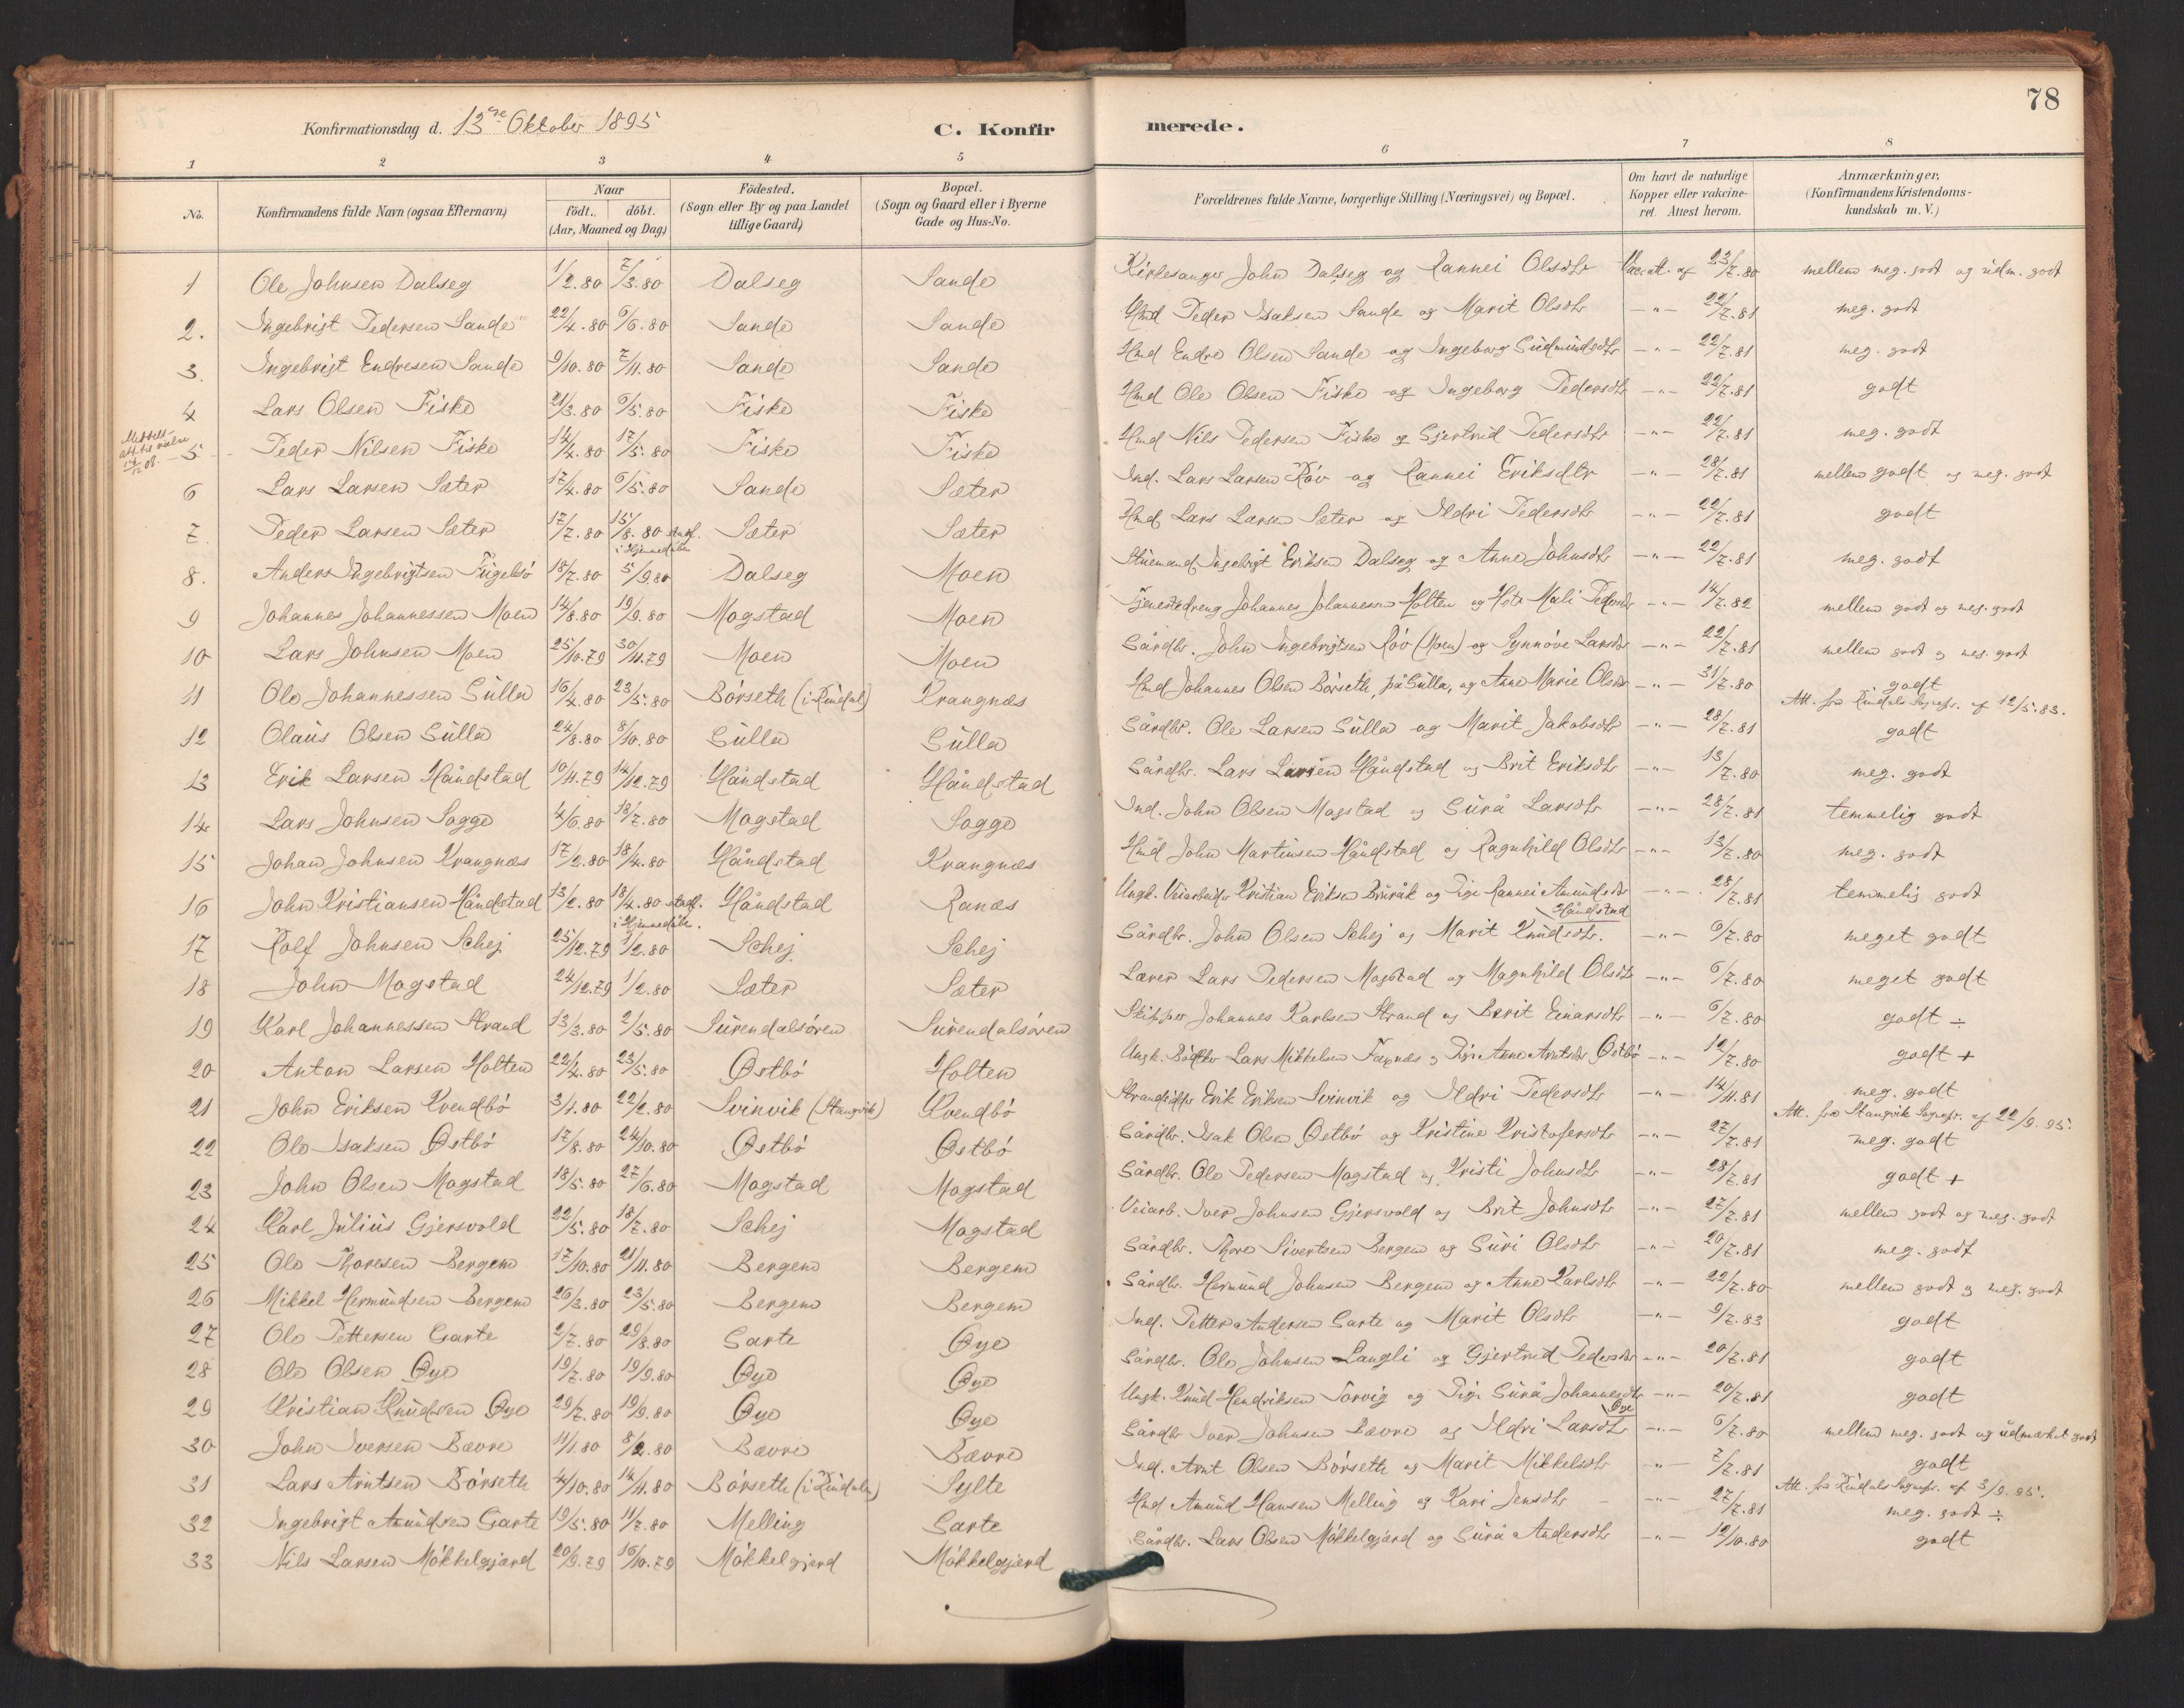 78
Konfirmationsdag d. 13de Oktober 1895
C. Konfirmerede.
1 2 3 4 5 6 7 8
No. Konfirmandens fulde Navn (ogsaa Efternavn) Naar födt., döbt. (Aar, Maaned og Dag) Födested. (Sogn eller By og paa Landet tillige Gaard) Bopæl. (Sogn og Gaard eller i Byerne Gade og Hus-No. Forældrenes fulde Navne, borgerlige Stilling (Næringsvei) og Bopæl. Om havt de naturlige Kopper eller vakcineret. Attest herom. Anmærkninger. (Konfirmandens Kristendomskundskab m. V.)
1 Ole Johnsen Dalseg 1/2.80 7/3.80 Dalseg Sande Kirkesanger John Dalseg og Rannei Olsdtr Vac. att. af 23/7.80 mellem meg. godt og udm. godt
2. Ingebrigt Pedersen Sande 22/4.80 6/6.80 Sande Sande Hmd Peder Isaksen Sande og Marit Olsdtr —"— 22/7.81 meg. godt
3. Ingebrigt Endresen Sande 9/10.80 7/11.80 Sande Sande Hmd Endre Olsen Sande og Ingeborg Gudmundsdtr —"— 22/7.81 meg. godt
4 Lars Olsen Fiske 21/3.80 6/5.80 Fiske Fiske Hmd Ole Olsen Fiske og Ingeborg Pedersdtr —"— 22/7.81 godt
5 Peder Nilsen Fiske 14/4.80 17/5.80 Fiske Fiske Hmd Nils Pedersen Fiske og Gjertrud Pedersdtr —"— 22/7.81 meg. godt
6 Lars Larsen Sæter 17/4.80 6/5.80 Sande Sæter Ind. Lars Larsen Röv og Rannei Eriksdtr —"— 28/7.81 mellem godt og meg. godt
7. Peder Larsen Sæter 17/7.80 15/8.80 stadf. i Hjemmedåben Sæter Sæter Hmd Lars Larsen Sæter og Ildri Pedersdtr —"— 22/7.81 godt
8. Anders Ingebrigtsen Fugelsö 18/7.80 5/9.80 Dalseg Moen Stuemand Ingebrigt Eriksen Dalseg og Anne Johnsdtr —"— 22/7.81 meg. godt
9 Johannes Johannessen Moen 14/8.80 19/9.80 Mogstad Moen Tjenestedreng Johannes Johannessen Holten og Hstr Mali Pedersdtr —"— 14/7.82 mellem godt og meg. godt
10 Lars Johnsen Moen 25/10.79 30/11.79 Moen Moen Gårdbr. John Ingebrigtsen Röv (Moen) og Synnöve Larsdtr —"— 22/7.81 mellem godt og meg. godt
11 Ole Johannessen Gulla 16/4.80 23/5.80 Börseth (i Rindal) Krangnæs Hmd Johannes Olsen Börseth, på Gulla, og Anne Marie Olsdtr —"— 31/7.80 godt Att. fra Rindals Sognepr. af 12/5.83.
12 Olaus Olsen Gulla 24/8.80 8/10.80 Gulla Gulla Gårdbr. Ole Larsen Gulla og Marit Jakobsdtr —"— 28/7.81 godt
13 Erik Larsen Håndstad 10/11.79 14/12.79 Håndstad Håndstad Gårdbr. Lars Larsen Håndstad og Brit Eriksdtr —"— 13/7.80 meg. godt
14 Lars Johnsen Sogge 4/6.80 18/7.80 Mogstad Sogge Ind. John Olsen Mogstad og Gurå Larsdtr —"— 28/7.81 temmelig godt
15 Johan Johnsen Krangnæs 17/2.80 18/4.80 Håndstad Krangnæs Hmd John Martinsen Håndstad og Ragnhild Olsdtr —"— 13/7.80 meg. godt
16 John Kristiansen Håndstad 13/2.80 18/4.80 stadf. i Hjemmedåb. Håndstad Ranæs Ungk. Veiarbeider Kristian Eriksen Bruråk og Pige Rannei Amundsdtr Håndstad —"— 28/7.81 temmelig godt
17 Rolf Johnsen Schej 25/12.79 1/2.80 Schej Schej Gårdbr. John Olsen Schej og Marit Knudsdtr. —"— 6/7.80 meget godt
18 John Mogstad 24/12.79 1/2.80 Sæter Sæter Lærer Lars Pedersen Mogstad og Magnhild Olsdtr —"— 6/7.80 meget godt
19 Karl Johannessen Strand 13/3.80 2/5.80 Surendalsören Surendalsören Skipper Johannes Karlsen Strand og Berit Einarsdtr —"— 6/7.80 godt ÷
20 Anton Larsen Holten 22/4.80 23/5.80 Østbö Holten Ungk. Lars Mikkelsen Faxnæs og Pige Anne Arntsdtr Østbö —"— 12/7.80 godt +
21 John Eriksen Kvendbö 3/1.80 22/2.80 Svinvik (Stangvik) Kvendbö Strandsidder Erik Eriksen Svinvik og Ildri Pedersdtr —"— 14/11.81 meg. godt Att. fra Stangvik Sognepr. af 22/9.95.
22 Ole Isaksen Østbö 17/8.80 24/10.80 Østbö Østbö Gårdbr. Isak Olsen Østbö og Kristine Kristofersdtr —"— 27/7.81 meg. godt
23 John Olsen Mogstad 18/5.80 27/6.80 Mogstad Mogstad Gårdbr. Ole Pedersen Mogstad og Kristi Johnsdtr —"— 28/7.81 godt +
24 Karl Julius Gjersvold 22/5.80 18/7.80 Schej Mogstad Veiarb. Iver Johnsen Gjersvold og Brit Johnsdtr —"— 27/7.81 mellem godt og meg. godt
25 Ole Thoresen Bergem 17/10.80 21/11.80 Bergem Bergem Gårdbr. Thore Sivertsen Bergem og Guri Olsdtr —"— 20/7.81 meg. godt
26 Mikkel Hermundsen Bergem 26/3.80 23/5.80 Bergem Bergem Gårdbr. Hermund Johnsen Bergem og Anne Karlsdtr —"— 22/7.80 mellem godt og meg. godt
27 Ole Pettersen Garte 2/7.80 29/8.80 Garte Øye Ind. Petter Andersen Garte og Marit Olsdtr —"— 9/7.83 godt
28 Ole Olsen Øye 19/7.80 19/9.80 Øye Øye Gårdbr. Ole Johnsen Langli og Gjertrud Pedersdtr —"— 20/7.81 godt
29 Kristian Knudsen Øye 29/7.80 19/9.80 Øye Øye Ungk. Knud Hendriksen Torvig og Pige Gurå Johannesdtr Øye —"— 20/7.81 godt
30 John Iversen Bævre 11/1.80 8/2.80 Bævre Bævre Gårdbr Iver Johnsen Bævre og Ildri Larsdtr —"— 6/7.80 mellem meg. godt og udmærket godt
31 Lars Arntsen Börseth 4/10.80 14/11.80 Börseth (i Rindalen) Sylte Ind. Arnt Olsen Börseth og Marit Mikkelsdtr —"— 7/7.81 godt Att. fra Rindals Sognepr. af 3/9.95.
32 Ingebrigt Amundsen Garte 19/5.80 11/7.80 Melling Garte Hmd Amund Hansen Melling og Kari Jensdtr —"— 27/7.81 meg. godt ÷
33 Nils Larsen Mökkelgjærd 20/9.79 16/10.79 Mökkelgjærd Mökkelgjærd Gårdbr. Lars Olsen Mökkelgjærd og Gurå Andersdtr —"— 12/10.80 godt